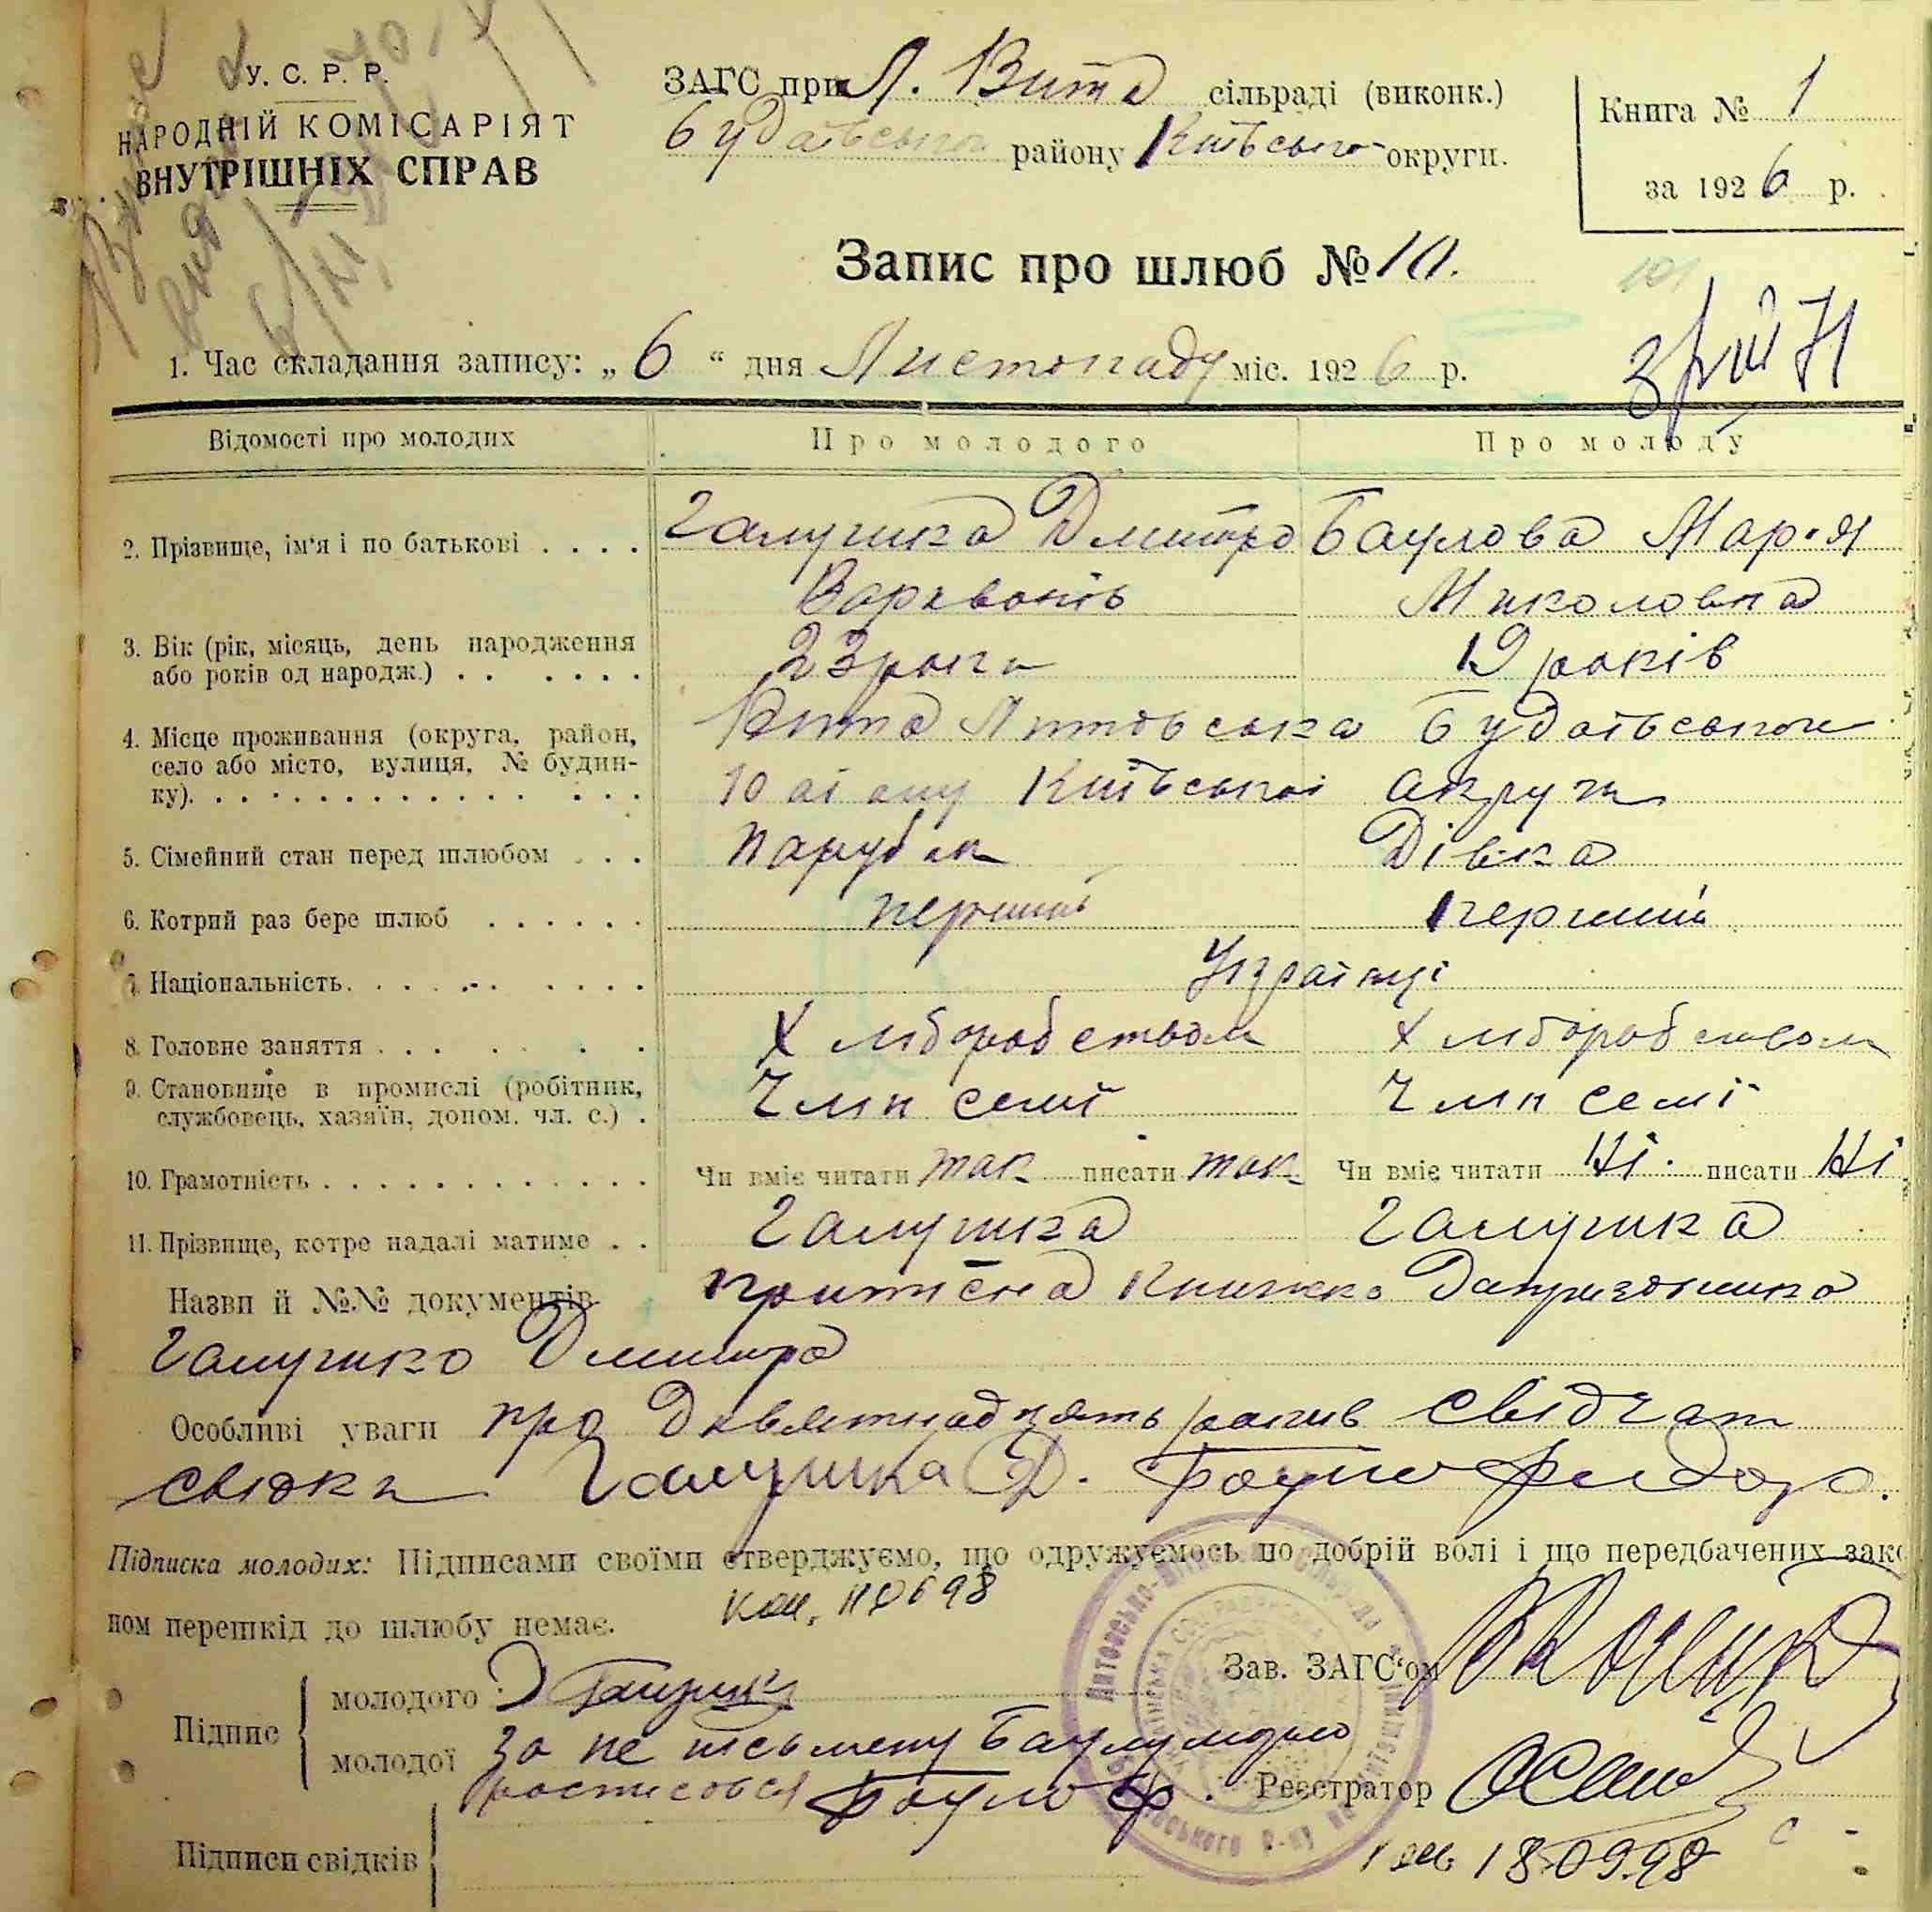 У. С. Р. Р.
НАРОДНІЙ КОМІСАРІЯТ
ВНУТРІШНІХ СПРАВ
ЗАГС при Л. Вита сільраді (виконк.)
Будаївського району Київської округи.
Книга № 1
за 1926 р.
Запис про шлюб № 10.
1. Час складання запису: „6“ дня Листопаду міс. 1926 р.
Відомості про молодих Про молодого Про молоду
2. Прізвище, ім'я і по батькові . . . . Галушка Дмитро Баулова Мар'я
Варквонів Миколовна
3. Вік (рік, місяць, день народження
або років од народж.) . . . . . . 23 роки 19 років
4. Місце проживання (округа, район,
село або місто, вулиця, № будин-
ку). Вита Литовська Будаївського
району Київської округи
5. Сімейний стан перед шлюбом . . . парубок Дівка
6. Котрий раз бере шлюб . . . . . . перший перший
7. Національність. Українці
8. Головне заняття . . . Хліборобством Хліборобством
9. Становище в промислі (робітник,
службовець, хазяїн, допом. чл. с.) . Член семї Член семї
10. Грамотність Чи вміє читати так писати так Чи вміє читати Ні. писати Ні
11. Прізвище, котре надалі матиме . . Галушка Галушка
Назви й №№ документів приписна книжка Допризовника
Галушко Дмитра
Особливі уваги про Девятнадцять років свідчать
свідки Галушка Д. Бауло Федора.
Підписка молодих: Підписами своїми стверджуємо, що одружуємось по добрій волі і що передбачених зако
ном перешкід до шлюбу немає.
Зав. ЗАГС'ом
Підпис
молодого Д Галушка
молодої за не письмену Баулу
росписовся Бауло Ф.
Реєстратор
Підписи свідків
18.09.98